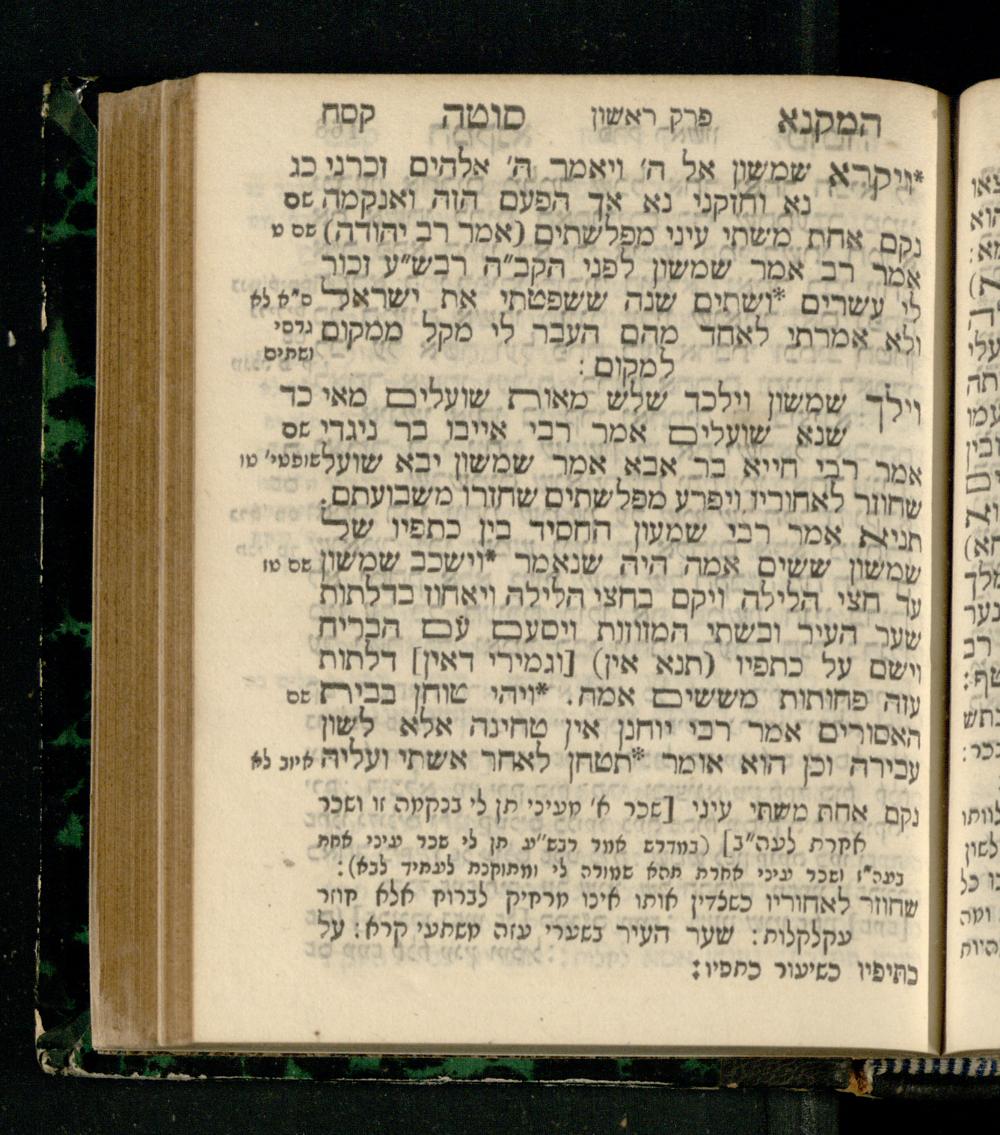 המקנא פרק ראשון סוטה קסח
*ויקרא שמשון אל ה' ויאמר ה' אלהים זכרני כג
נא וחזקני נא אך הפעם הזה ואנקמה שם
נקם אחת משתי עיני מפלשתים (אמר רב יהודה) שם ט
אמר רב אמר שמשון לפני הקב"ה רבש"ע זכור
לי עשרים *ושתים שנה ששפטתי את ישראל ס"א לא
ולא אמרתי לאחד מהם העבר לי מקל ממקום גרסי
למקום : ושתים
וילך שמשון וילכד שלש מאות שועלים מאי כד
שנא שועלים אמר רבי אייבו בר ניגדי שם
אמר רבי חייא בר אבא אמר שמשון יבא שועל שופטי' טו
שחוזר לאחוריו ויפרע מפלשתים שחזרו משבועתם.
תניא אמר רבי שמעון החסיד בין כתפיו של
שמשון ששים אמה היה שנאמר *וישכב שמשון שם טז
עד חצי הלילה ויקם בחצי הלילה ויאחוז בדלתות
שער העיר ובשתי המזוזות ויסעם עם הבריח
וישם על כתפיו (תנא אין) [וגמירי דאין] דלתות
עזה פחותות מששים אמה. *ויהי טוחן בבית שם
האסורים אמר רבי יוחנן אין טחינה אלא לשון
עבירה וכן הוא אומר *תטחן לאחר אשתי ועליה איוב לא
נקם אחת משתי עיני [שכר א' מעיני תן לי בנקמה זו ושכר
אחרת לעה"ב] (במדרש אמר רבש"ע תן לי שכר עיני אחת
בעה"ז ושכר עיני אחרת תהא שמורה לי ומתוקנת לעתיד לבא):
שחוזר לאחוריו כשלדין אותו אינו מרחיק לברוח אלא חוזר
עקלקלות: שער העיר בשערי עזה משתעי קרא: על
כתיפיו כשיעור כתפיו: